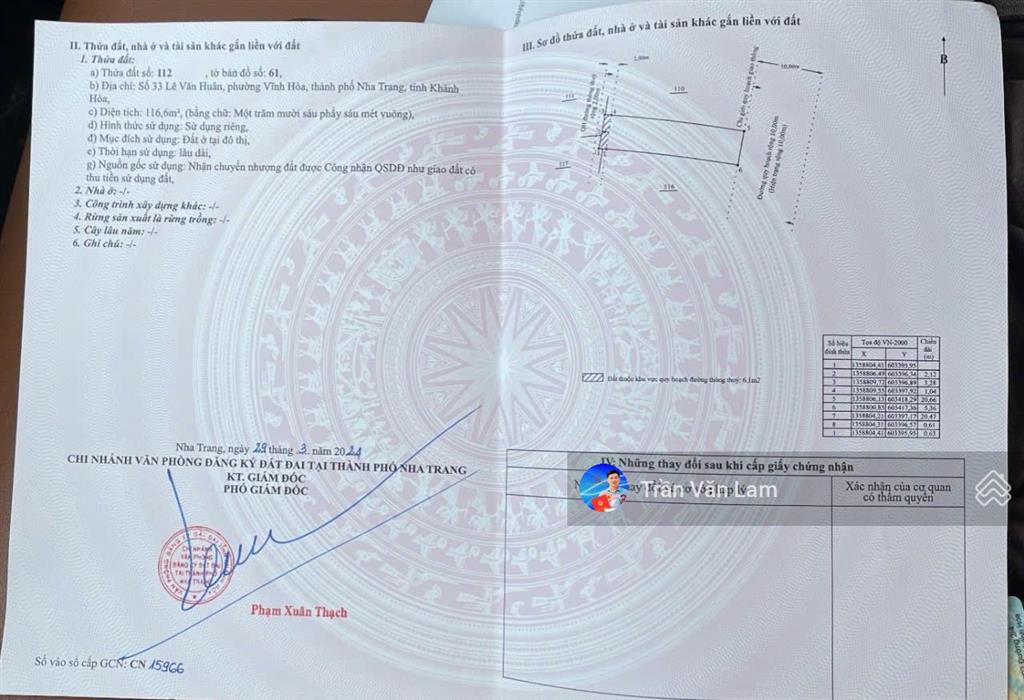 II. Thửa đất, nhà ở và tài sản khác gắn liền với đất
1. Thửa đất:
a) Thửa đất số: 112 , tờ bản đồ số: 61,
b) Địa chỉ: Số 33 Lê Văn Huân, phường Vĩnh Hòa, thành phố Nha Trang, tỉnh Khánh
Hòa,
c) Diện tích: 116,6m², (bằng chữ: Một trăm mười sáu phẩy sáu mét vuông),
d) Hình thức sử dụng: Sử dụng riêng,
đ) Mục đích sử dụng: Đất ở tại đô thị,
e) Thời hạn sử dụng: lâu dài,
g) Nguồn gốc sử dụng: Nhận chuyển nhượng đất được Công nhận QSDĐ như giao đất có
thu tiền sử dụng đất,
2. Nhà ở: -/-
3. Công trình xây dựng khác: -/-
4. Rừng sản xuất là rừng trồng: -/-
5. Cây lâu năm: -/-
6. Ghi chú: -/-
Nha Trang, ngày 29 tháng 3 năm 2024
CHI NHÁNH VĂN PHÒNG ĐĂNG KÝ ĐẤT ĐAI TẠI THÀNH PHỐ NHA TRANG
KT. GIÁM ĐỐC
PHÓ GIÁM ĐỐC
CHI NHÁNH
VĂN PHÒNG
ĐĂNG KÝ ĐẤT ĐAI
TẠI THÀNH PHỐ
NHA TRANG
Phạm Xuân Thạch
Số vào sổ cấp GCN: CN 15966
III. Sơ đồ thửa đất, nhà ở và tài sản khác gắn liền với đất
B
2,00m
10,00m
110
117
116
Chỉ giới quy hoạch giao thông
Đường quy hoạch rộng 10,00m
(Hiện trạng rộng 10,00m)
Số hiệu đỉnh thửa Tọa độ VN-2000 Chiều dài (m)
X Y
1 1358804,41 603395,95
2 1358806,49 603396,34 2,12
3 1358809,72 603396,89 3,28
4 1358809,55 603397,92 1,04
5 1358806,13 603418,29 20,66
6 1358800,85 603417,36 5,36
7 1358804,21 603397,17 20,47
8 1358804,31 603396,57 0,61
1 1358804,41 603395,95 0,63
Đất thuộc khu vực quy hoạch đường thông thuỷ: 6,1m2
IV. Những thay đổi sau khi cấp giấy chứng nhận
Xác nhận của cơ quan
có thẩm quyền
Trần Văn Lam